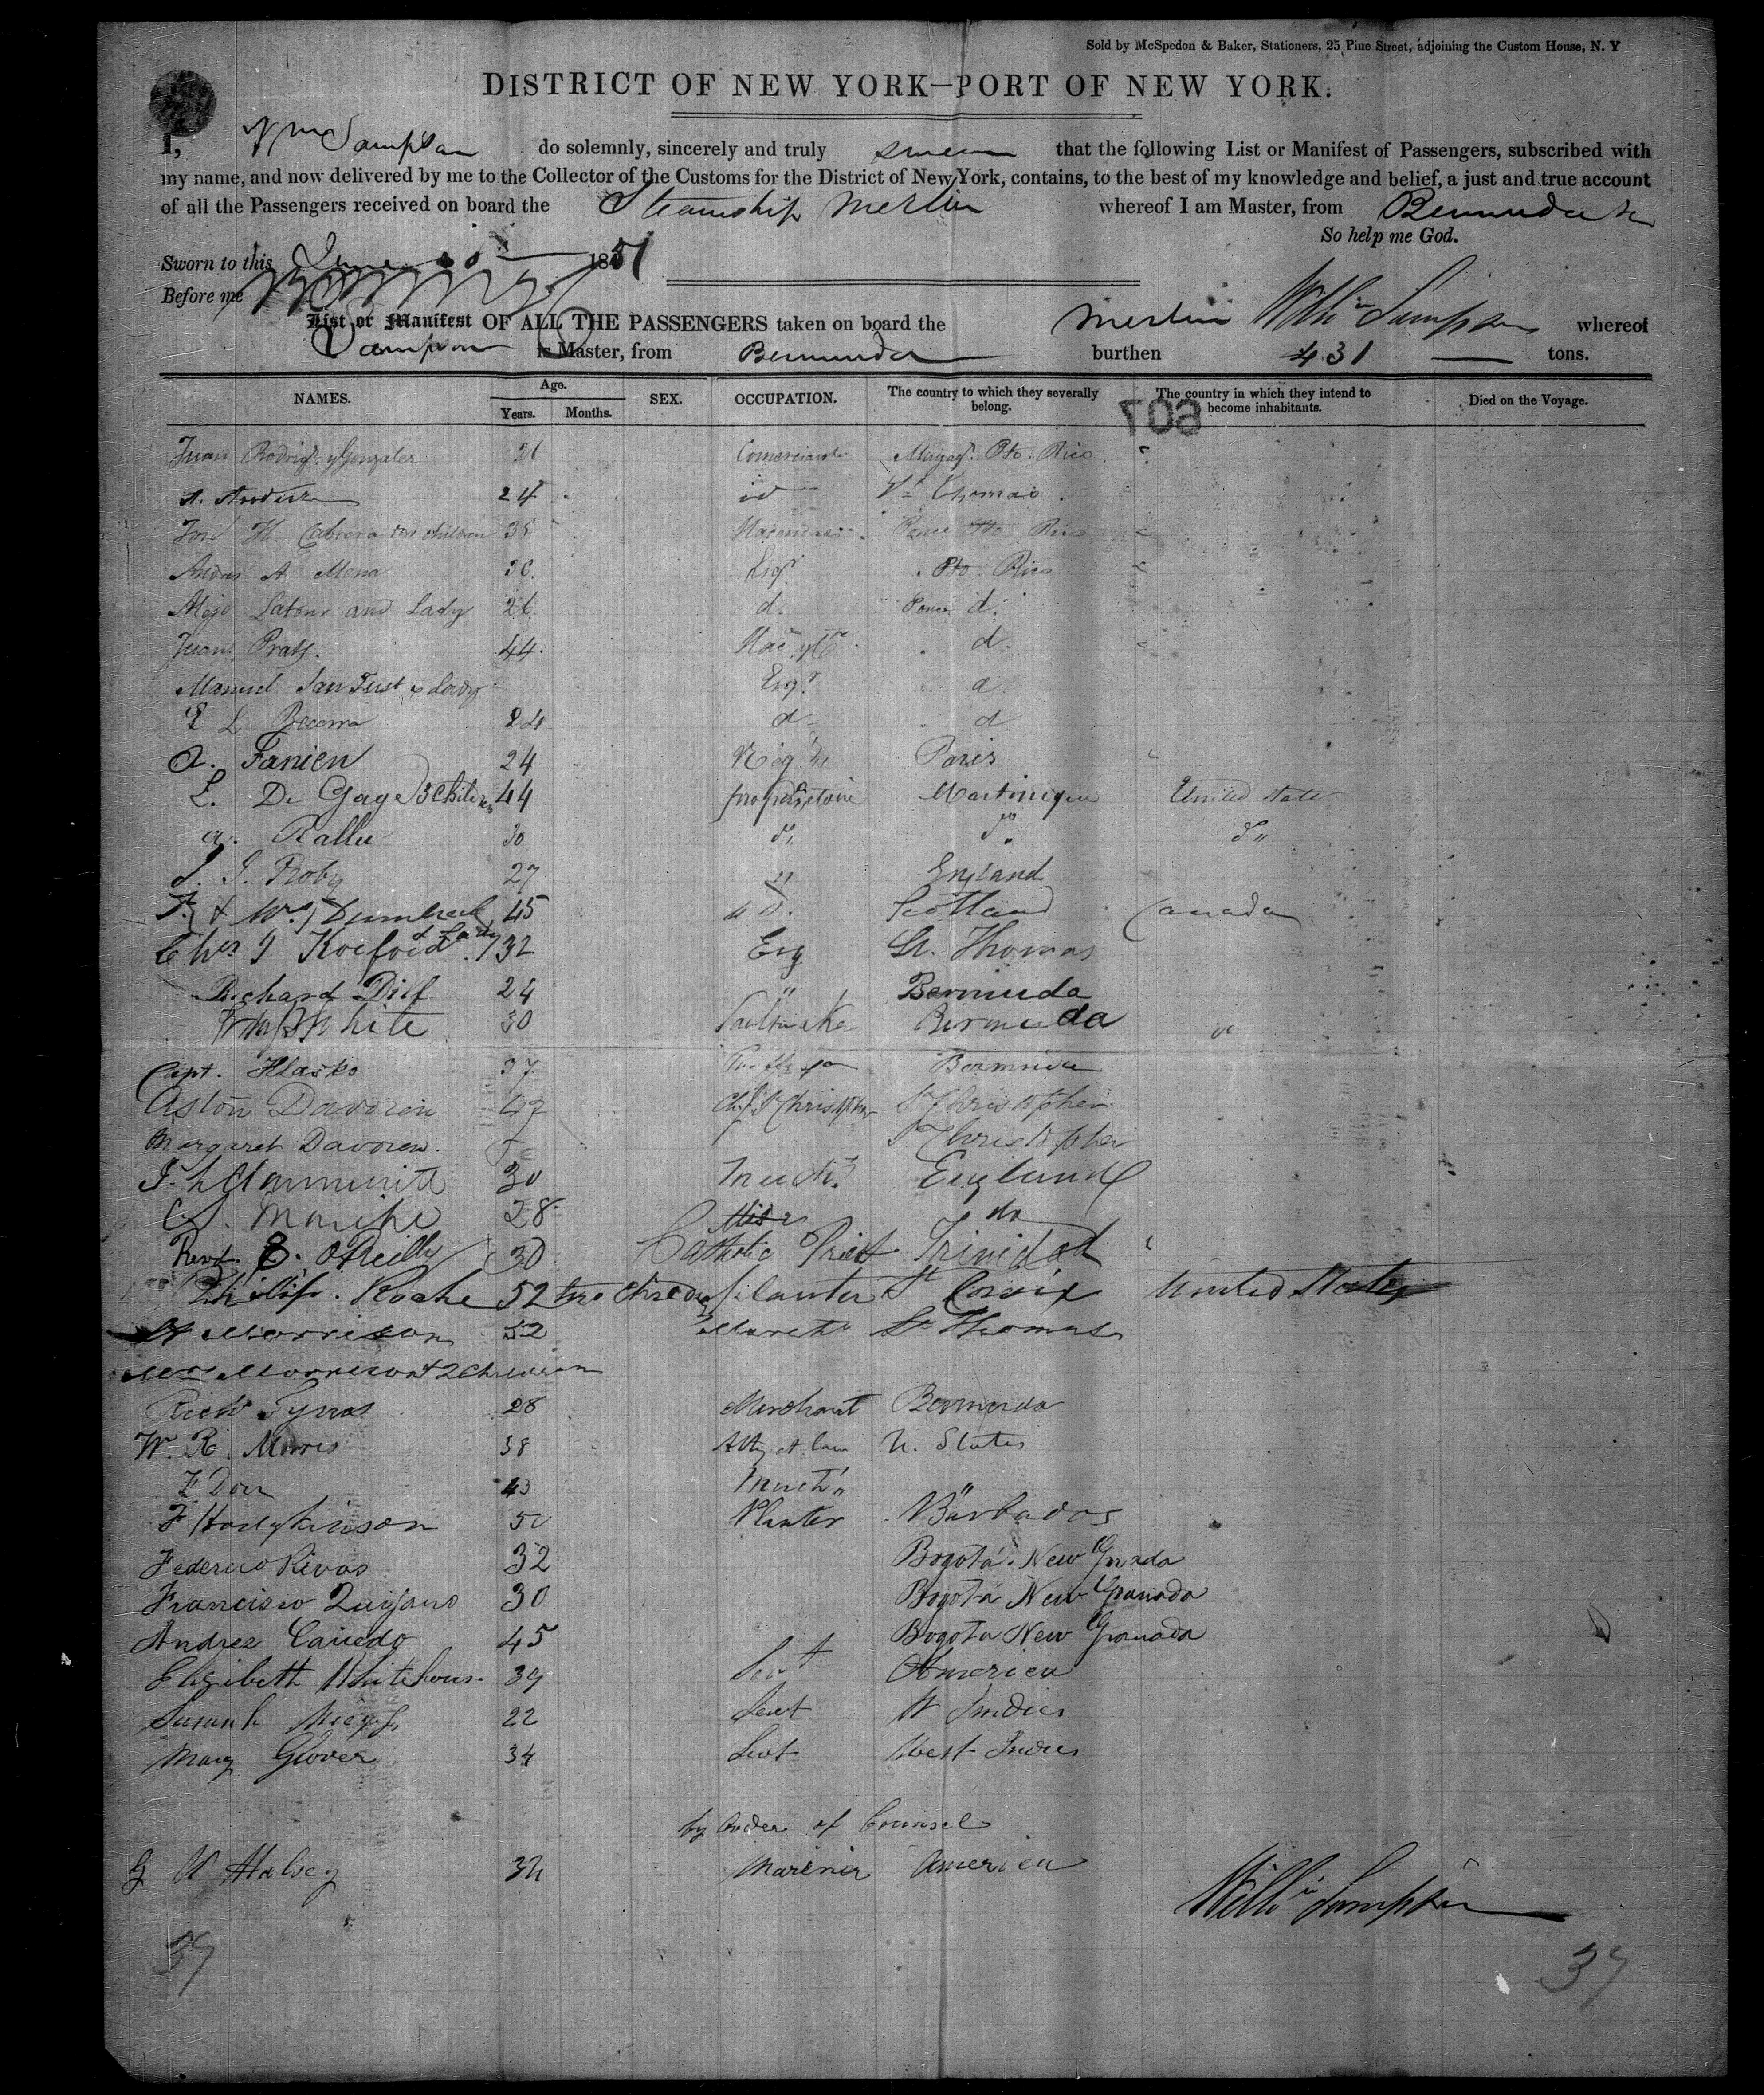 Sold by McSpedon & Baker, Stationers, 25 Pine Street, adjoining the Custom House, N. Y
DISTRICT OF NEW YORK—PORT OF NEW YORK.
I, Wm Sampson do solemnly, sincerely and truly swear that the following List or Manifest of Passengers, subscribed with
my name, and now delivered by me to the Collector of the Customs for the District of New York, contains, to the best of my knowledge and belief, a just and true account
of all the Passengers received on board the Steamship Merlin whereof I am Master, from Bermuda
So help me God.
Sworn to this June 1851
Before me
List or Manifest OF ALL THE PASSENGERS taken on board the Merlin Willm Sampson whereof
Sampson is Master, from Bermuda burthen 431 tons.
NAMES. Age. Years. Months. SEX. OCCUPATION. The country to which they severally belong. The country in which they intend to become inhabitants. Died on the Voyage.
507
Juan Rodrigz. y Gonzalez 21 Comerciante Mayagz. Pto. Rico
A. 24 id St Thomas
H. Cabrera children 38 Ponce Pto Rico
Andres A Mena 30. Esqr. Pto. Rico
Alejo Latour and Lady 26 d. Ponce d.
Juan Prats. 44. d.
Manuel San Just & Lady Esqr. d.
L Becerra 24 d d
A. Fanien 24 Paris
L. De Gage 3 children 44 propriétaire Martinique United State
a. Rallu 30 do do do
J. J. Roby 27 " England
& Mrs 45 Scotland Canada
Chs J Koefoed & Lady 32 Esq St. Thomas
Richard Dill 24 " Bermuda
White 30 Bermuda "
Capt. 37 Bermuda
Aston Davoren 47 St Christopher St Christopher
Margaret Davoren. St Christopher
30 Mercht. England
28 do
Revd. E. O'Reilly 30 Catholic Priest Trinidad
Philip. Roche 52 two children planter St Croix United States
W Morrison 52 St Thomas
Mrs Morrison & 2 Children
Richd Tynes 28 Merchant Bermuda
W. R. Morris 38 Atty at law U. States
43 Mercht "
F Hodgkinson 50 Planter Barbados
Federico Rivas 32 Bogotá New Granada
Francisco Quijano 30 Bogotá New Granada
Andres Caicedo 45 Bogota New Granada
Elizibeth Whitehouse 39 Servt America
Susanah 22 Servt W Indies
Mary Glover 34 Servt West Indies
by Order of Counsel
G W Halsey 32 Mariner America
Willm Sampson
37
37